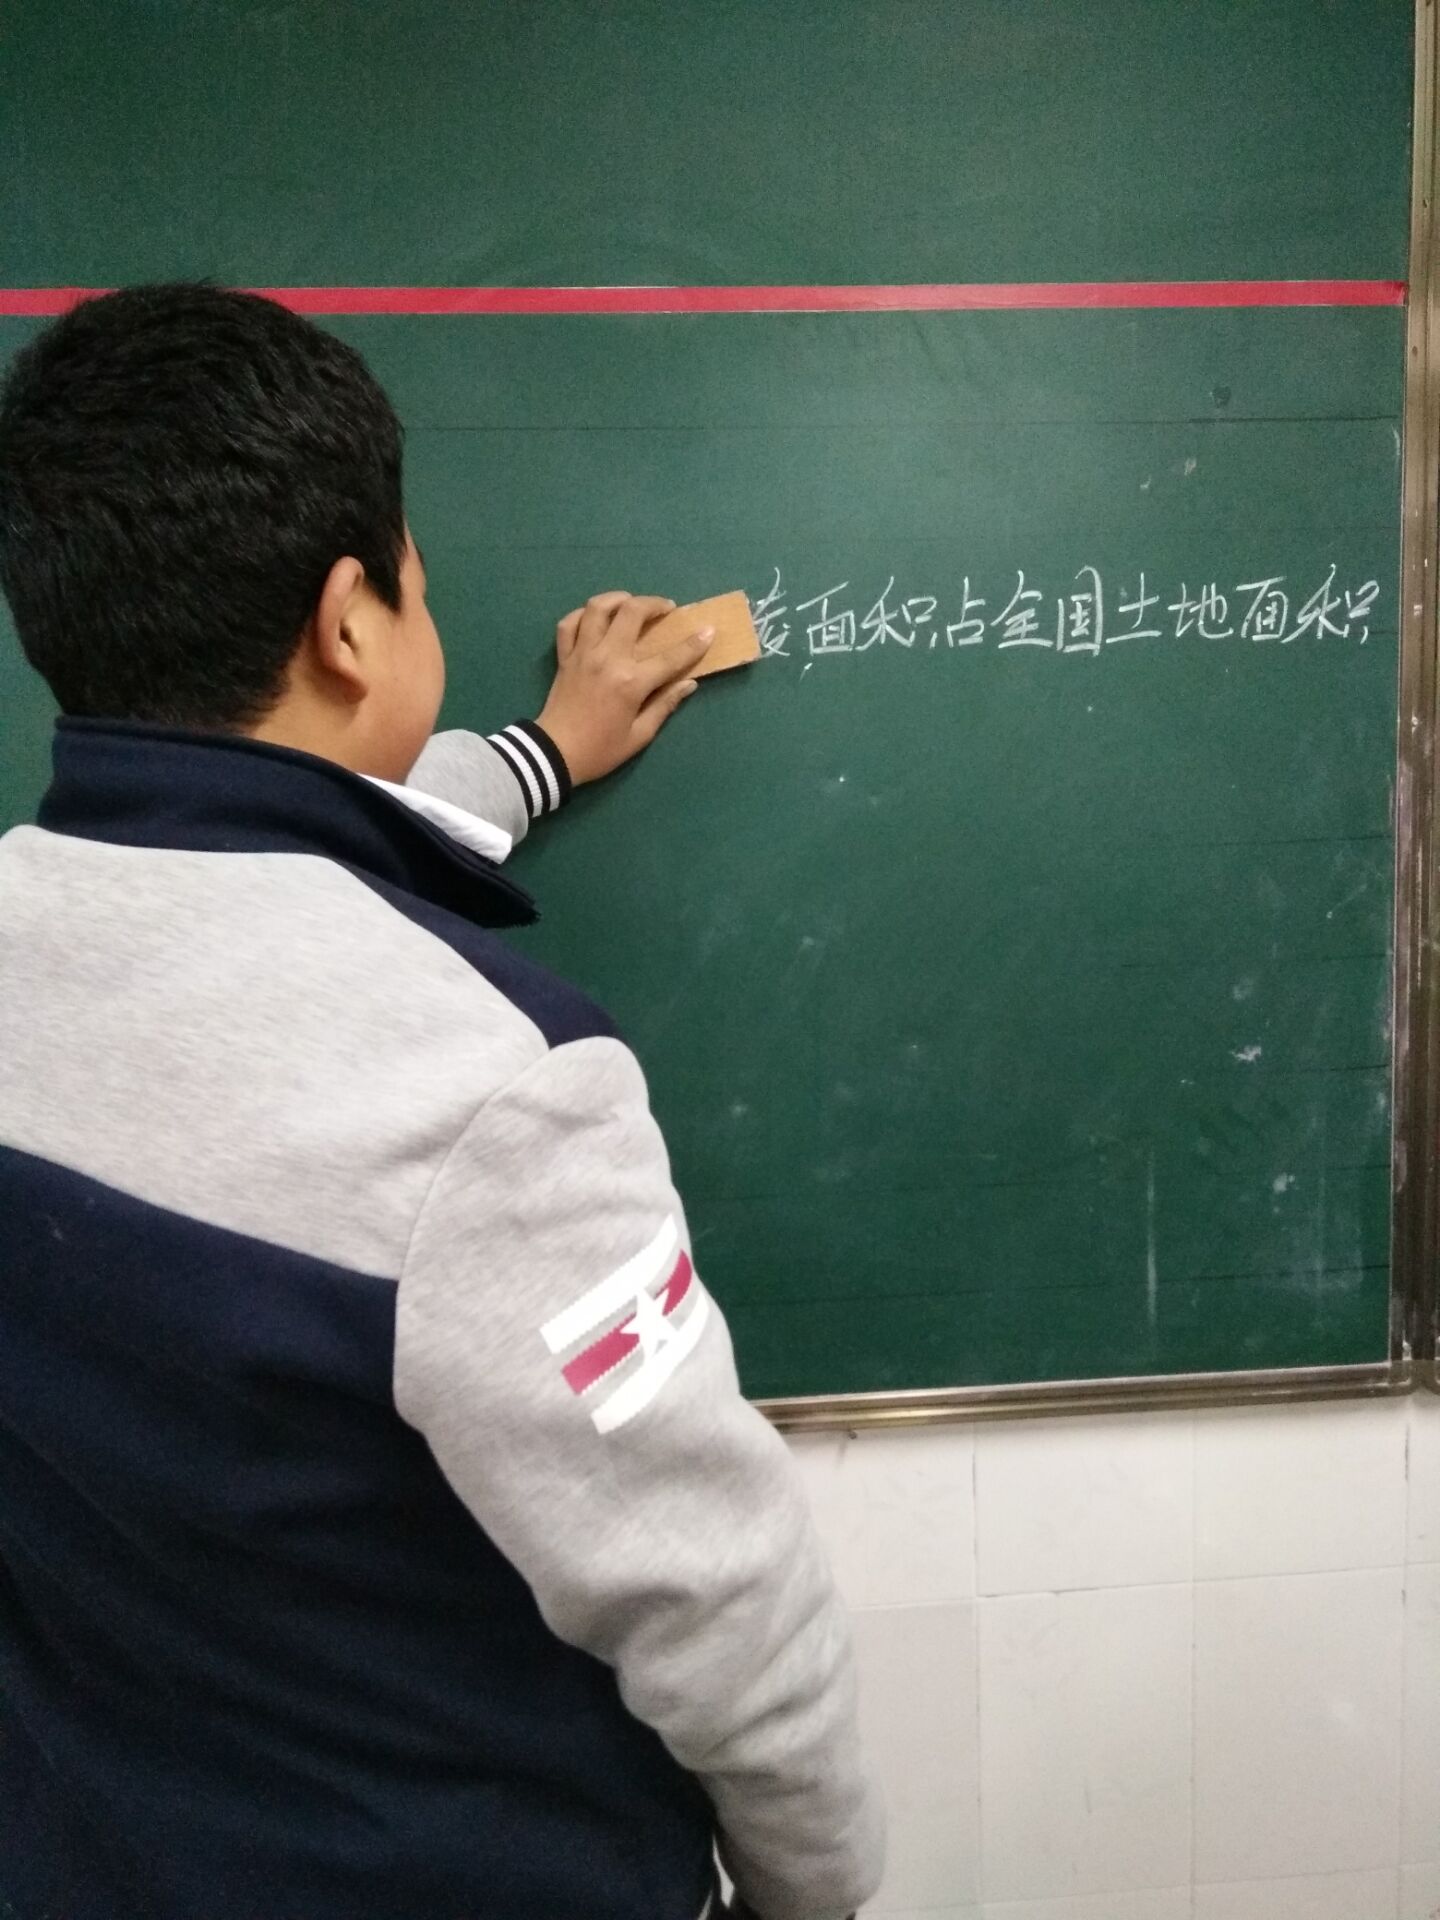 面积占全国土地面积